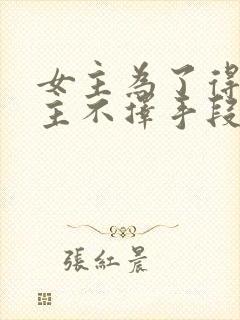 女主為了得
主不擇手段
張紅晨